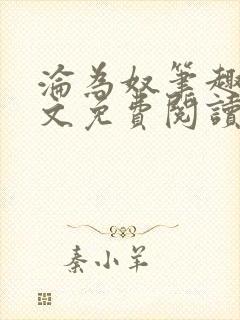 淪為奴筆趣
文免費閱讀
秦小羊